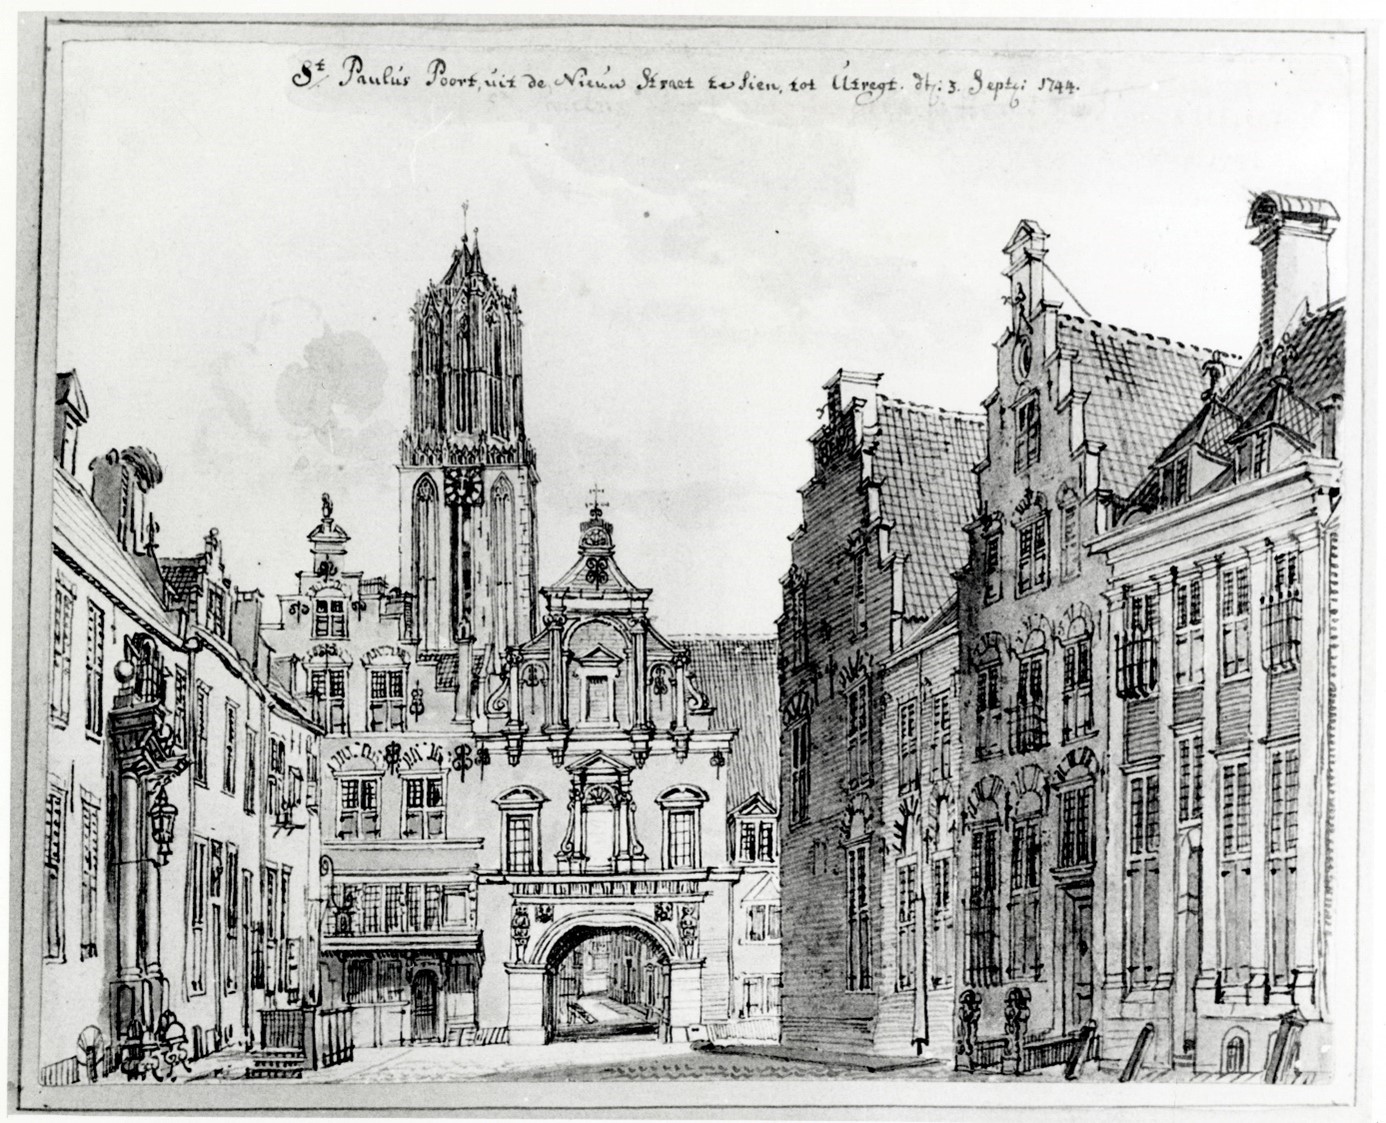 St Paulus Poort, uit de Nieuw Straet te sien, tot Utregt. dn: 3. Septr: 1744.